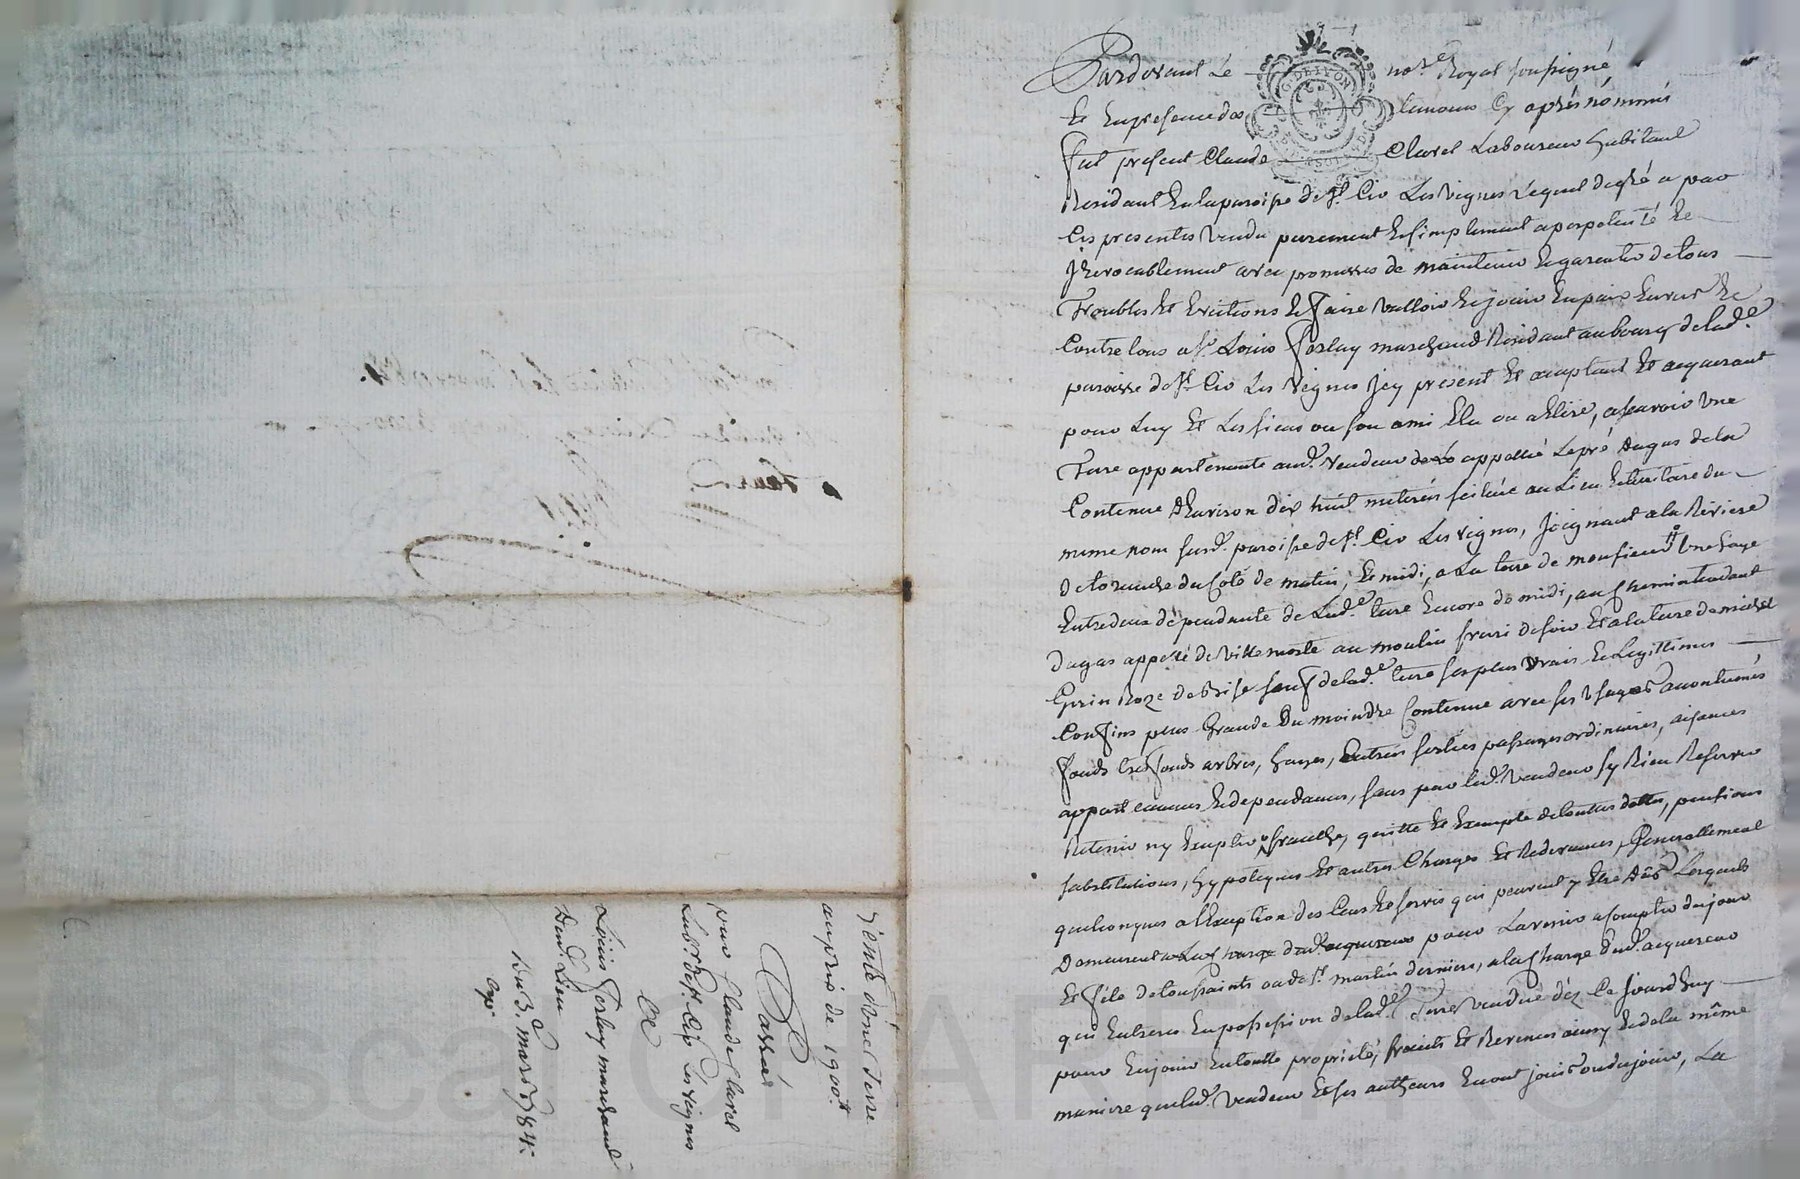 Pardevant Le no.re Royal soussigné
Et En presence des temoins Cy après nommés
fut present Claude Clarel Laboureur habitant
Residant En la paroisse de St. Cir Les Vignes Lequel de gré a par
Ces presentes Vendu purement Et simplement a perpetuité Et
Irrevocablement avec promesses de maintenir Et garentir de tous
Troubles Et Evictions Et faire Valloir Et jouir En paix Envers Et
Contre tous a Sr. Louis Ferlay marchand Residant au bourg de lad.e
paroisse de St. Cir Les Vignes Icy present Et acceptant Et acquerant
pour Luy Et Les siens ou son ami Elu ou a Elire, a scavoir Une
Terre appartenante aud. Vendeur appellé Le pré Dugas de la
Contenue d'Environ dix huit meterés scituée au Lieu Et territoire du
meme nom susd. paroisse de St. Cir Les Vignes, Joignant a la Riviere
de toranche du Coté de matin, Et midi, a La terre de monsieur Une haye
Entredeux dépendante de Lad.e terre Encore de midi, au chemin tendant
Dugas appellé de Villemorte au moulin de soir Et a la terre de michel
de bise sauf de lad.e terre ses plus Vrais Et Legittimes
Confins plus Grande Ou moindre Contenue avec ses Usages accoutumés
fonds tresfonds arbres, hayes, Entrées sorties passages ordinaires, aisances
appartenances Et dependances, sans par led. Vendeur sy Rien Reserver
Retenir ny Excepter, franche, quitte Et Exempte de toutes dettes, pensions
substitutions, hypoteques Et autres Charges Et Redevances, Generallement
quelconques a L'Exception des Cens Et servis qui peuvent y Etre Dûs Lesquels
Demeurent a La charge dud. acquereur pour L'avenir a Compter du jour
Et fête de toussaints ou de St. martin derniers, a la Charge dud. acquereur
qui Entrera En possession de lad.e Terre Vendue dés Ce Jourd'huy
pour En jouir En toutte proprieté, fruits Et Revenus ainsy Et de la même
maniere que led. Vendeur Et ses autheurs En ont jouis ou du jouir, La
Vente d'Une Terre
au prix de 1900.tt
Passée
par Claude Clarel
Lab.r de St. Cir Les Vignes
a
Louis Ferlay marchand
Dud. Lieu
Du 3. mars 1784.